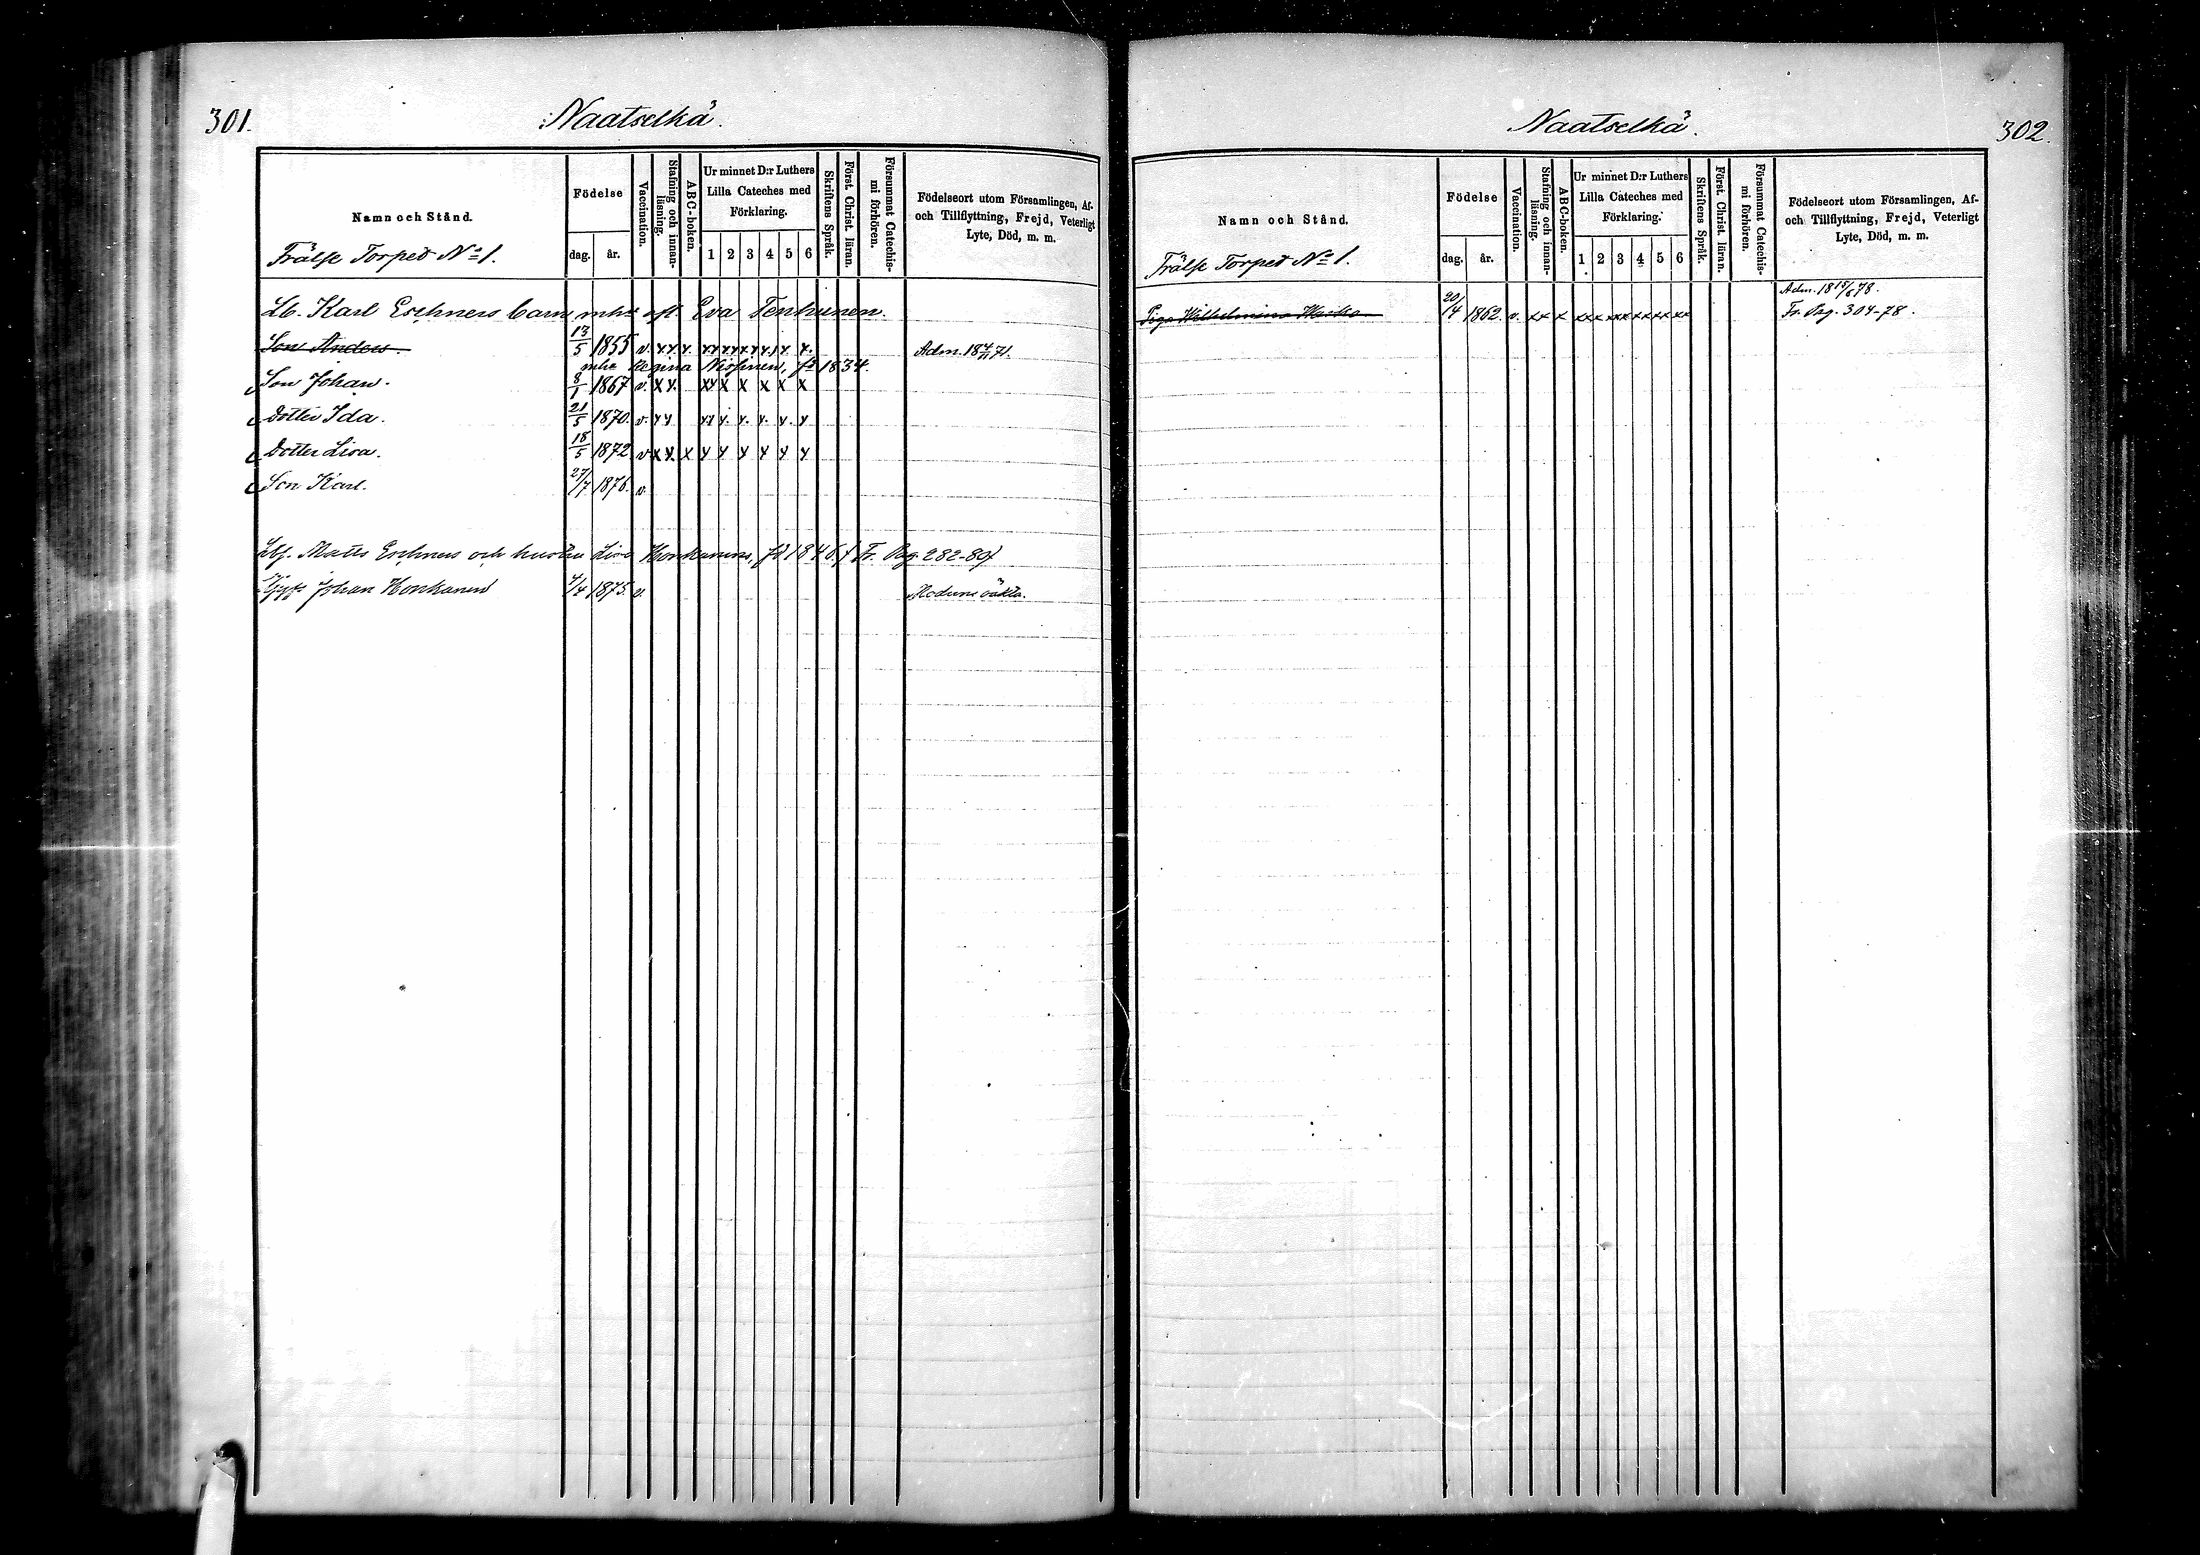 301.
Naatselkä.
Namn och Stånd.
Frälse Torpet No 1.
Födelse
dag.
år.
Vaccination.
Stafning och innanläsning.
ABC-boken.
Ur minnet D:r Luthers
Lilla Cateches med
Förklaring.
1 2 3 4 5 6
Skriftens Språk.
Först. Christ. läran.
Försummat Catechismi förhören.
Födelseort utom Församlingen, Af-
och Tillflyttning, Frejd, Veterligt
Lyte, Död, m. m.
Lb. Karl Eschners barn mhu afl. Eva Tenhunen.
Son Anders. 13/5 1855 v. x x x. x x x x x x x. x. x. Adm. 18 4/11 71.
mhu Regina Nisinen, fd 1834.
Son Johan. 8/1 1867 v. x x. x x x x x x x
Dotter Ida. 21/5 1870. v. x x x x x. x. x. x. x
Dotter Lisa. 18/5 1872 v x x x x x x x x x
Son Karl. 27/7 1876. v.
Lbf. Matts Eschners och hustru Lisa Honkanens, fd 1846 f Fr. Pag. 282-80f
Johan Honkanen 4/4 1875. v. Moderns oäkta.
302.
Naatselkä.
Namn och Stånd.
Frälse Torpet No 1.
Födelse
dag.
år.
Vaccination.
Stafning och innanläsning.
ABC-boken.
Ur minnet D:r Luthers
Lilla Cateches med
Förklaring.
1 2 3 4 5 6
Skriftens Språk.
Först. Christ. läran.
Försummat Catechismi förhören.
Födelseort utom Församlingen, Af-
och Tillflyttning, Frejd, Veterligt
Lyte, Död, m. m.
Adm. 18 15/6 78.
Piga Wilhelmina 20/4 1862. v. xx x xxx xxx xx xx xx Fr. Pag. 304-78.